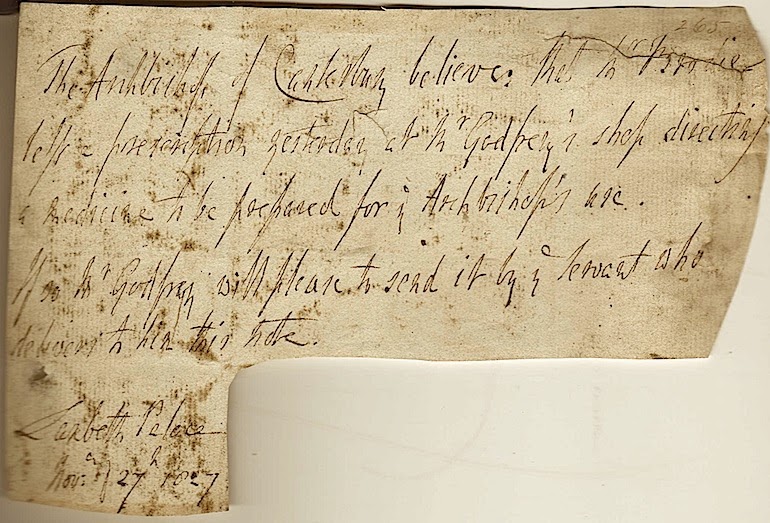 265
The Archbishop of Canterbury believes that Mr Brodie
left a prescription yesterday at Mr Godfrey's shop directing
a medicine to be prepared for ye Archbishop's use.
If so Mr Godfrey will please to send it by ye servant who
delivers to him this note.
Lambeth Palace
27th 1827